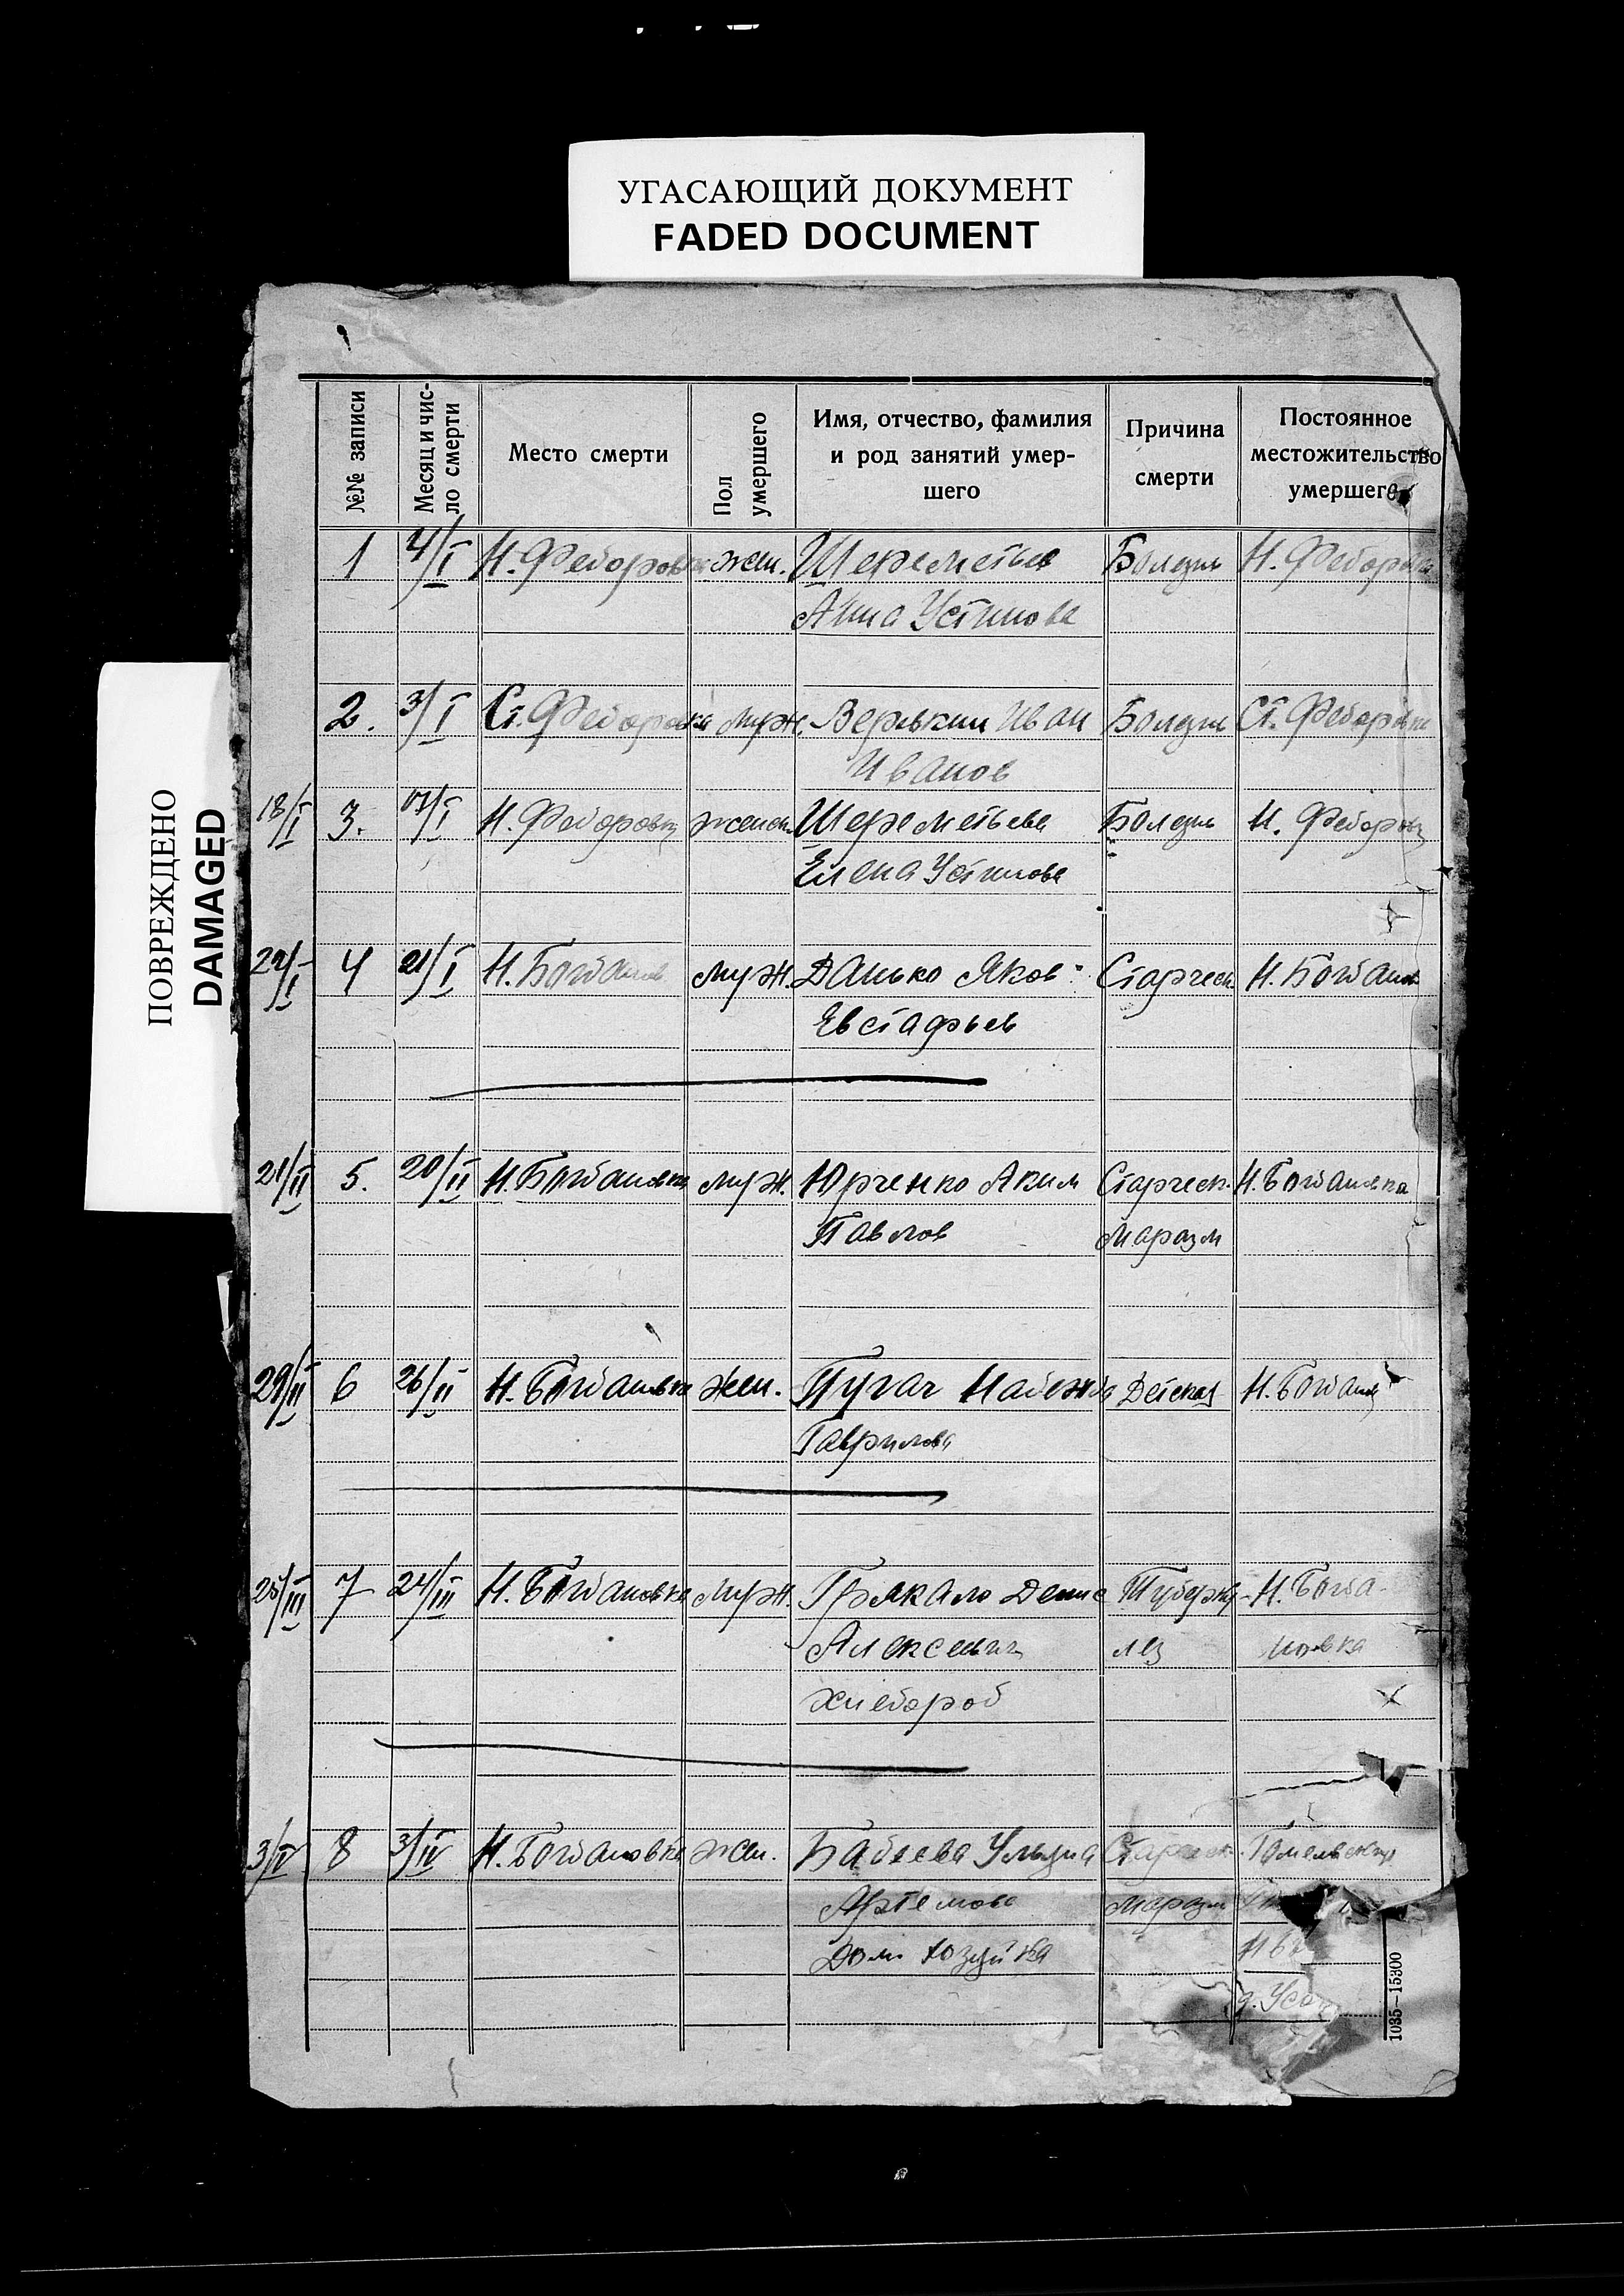 УГАСАЮЩИЙ ДОКУМЕНТ
FADED DOCUMENT
ПОВРЕЖДЕНО
DAMAGED
№№ записи
Месяц и чис-
ло смерти
Место смерти
Пол
умершего
Имя, отчество, фамилия
и род занятий умер-
шего
Причина
смерти
Постоянное
местожительство
умершего
1 4/I Н. Федоровка жен. Шереметьева Болезнь Н. Федоровка
Анна Устинова
2. 3/I Ст. Федоровка муж. Веревкин Иван Болезнь Ст. Федоровка
Иванов
18/I 3. 07/I Н. Федоровка женск. Шереметьева Болезнь Н. Федоровка
Елена Устинова
22/I 4 21/I Н. Богданов муж. Данько Яков Старческ. Н. Богданов
Евстафьев
21/II 5. 20/II Н. Богдановка муж. Юрченко Аким Старческ. Н. Богдановка
Павлов Маразм
29/II 6 26/II Н. Богдановка жен. Пугач Надежда Детская Н. Богданов
Гаврилова
25/III 7 24/III Н. Богдановка муж. Грякало Денис Туберку- Н. Богда-
Алексеевич лез новка
хлебороб
3/IV 8 3/IV Н. Богдановка жен. Бабеева Ульяна Старческ. Гомельский
Артемова Маразм
Дом. хозуйка
д. Усо
1035—15300